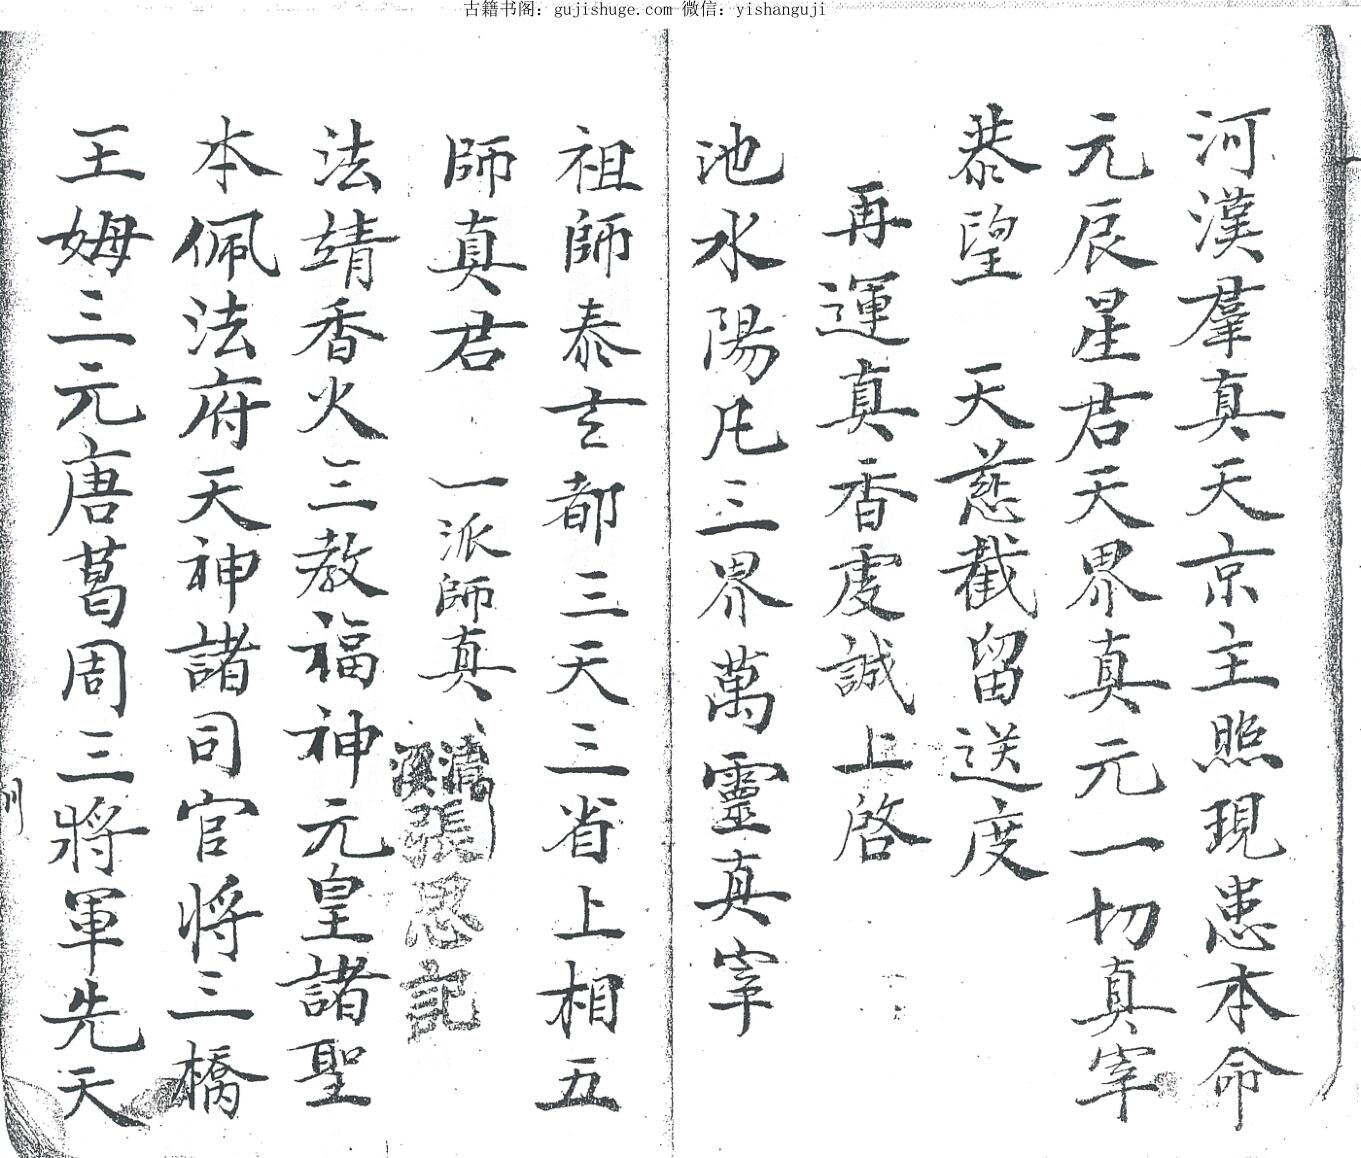 古籍书阁：gujishuge.com 微信：yishanguji
河漢羣真天京主照現患本命
元辰星君天界真元一切真宰
恭望　天慈截留送度
再運真香虔誠上啓
池水陽凡三界萬靈真宰
祖師泰玄都三天三省上相五
師真君　一派師真
張恩記
法靖香火三教福神元皇諸聖
本佩法府天神諸司官将三橋
王姆三元唐葛周三將軍先天